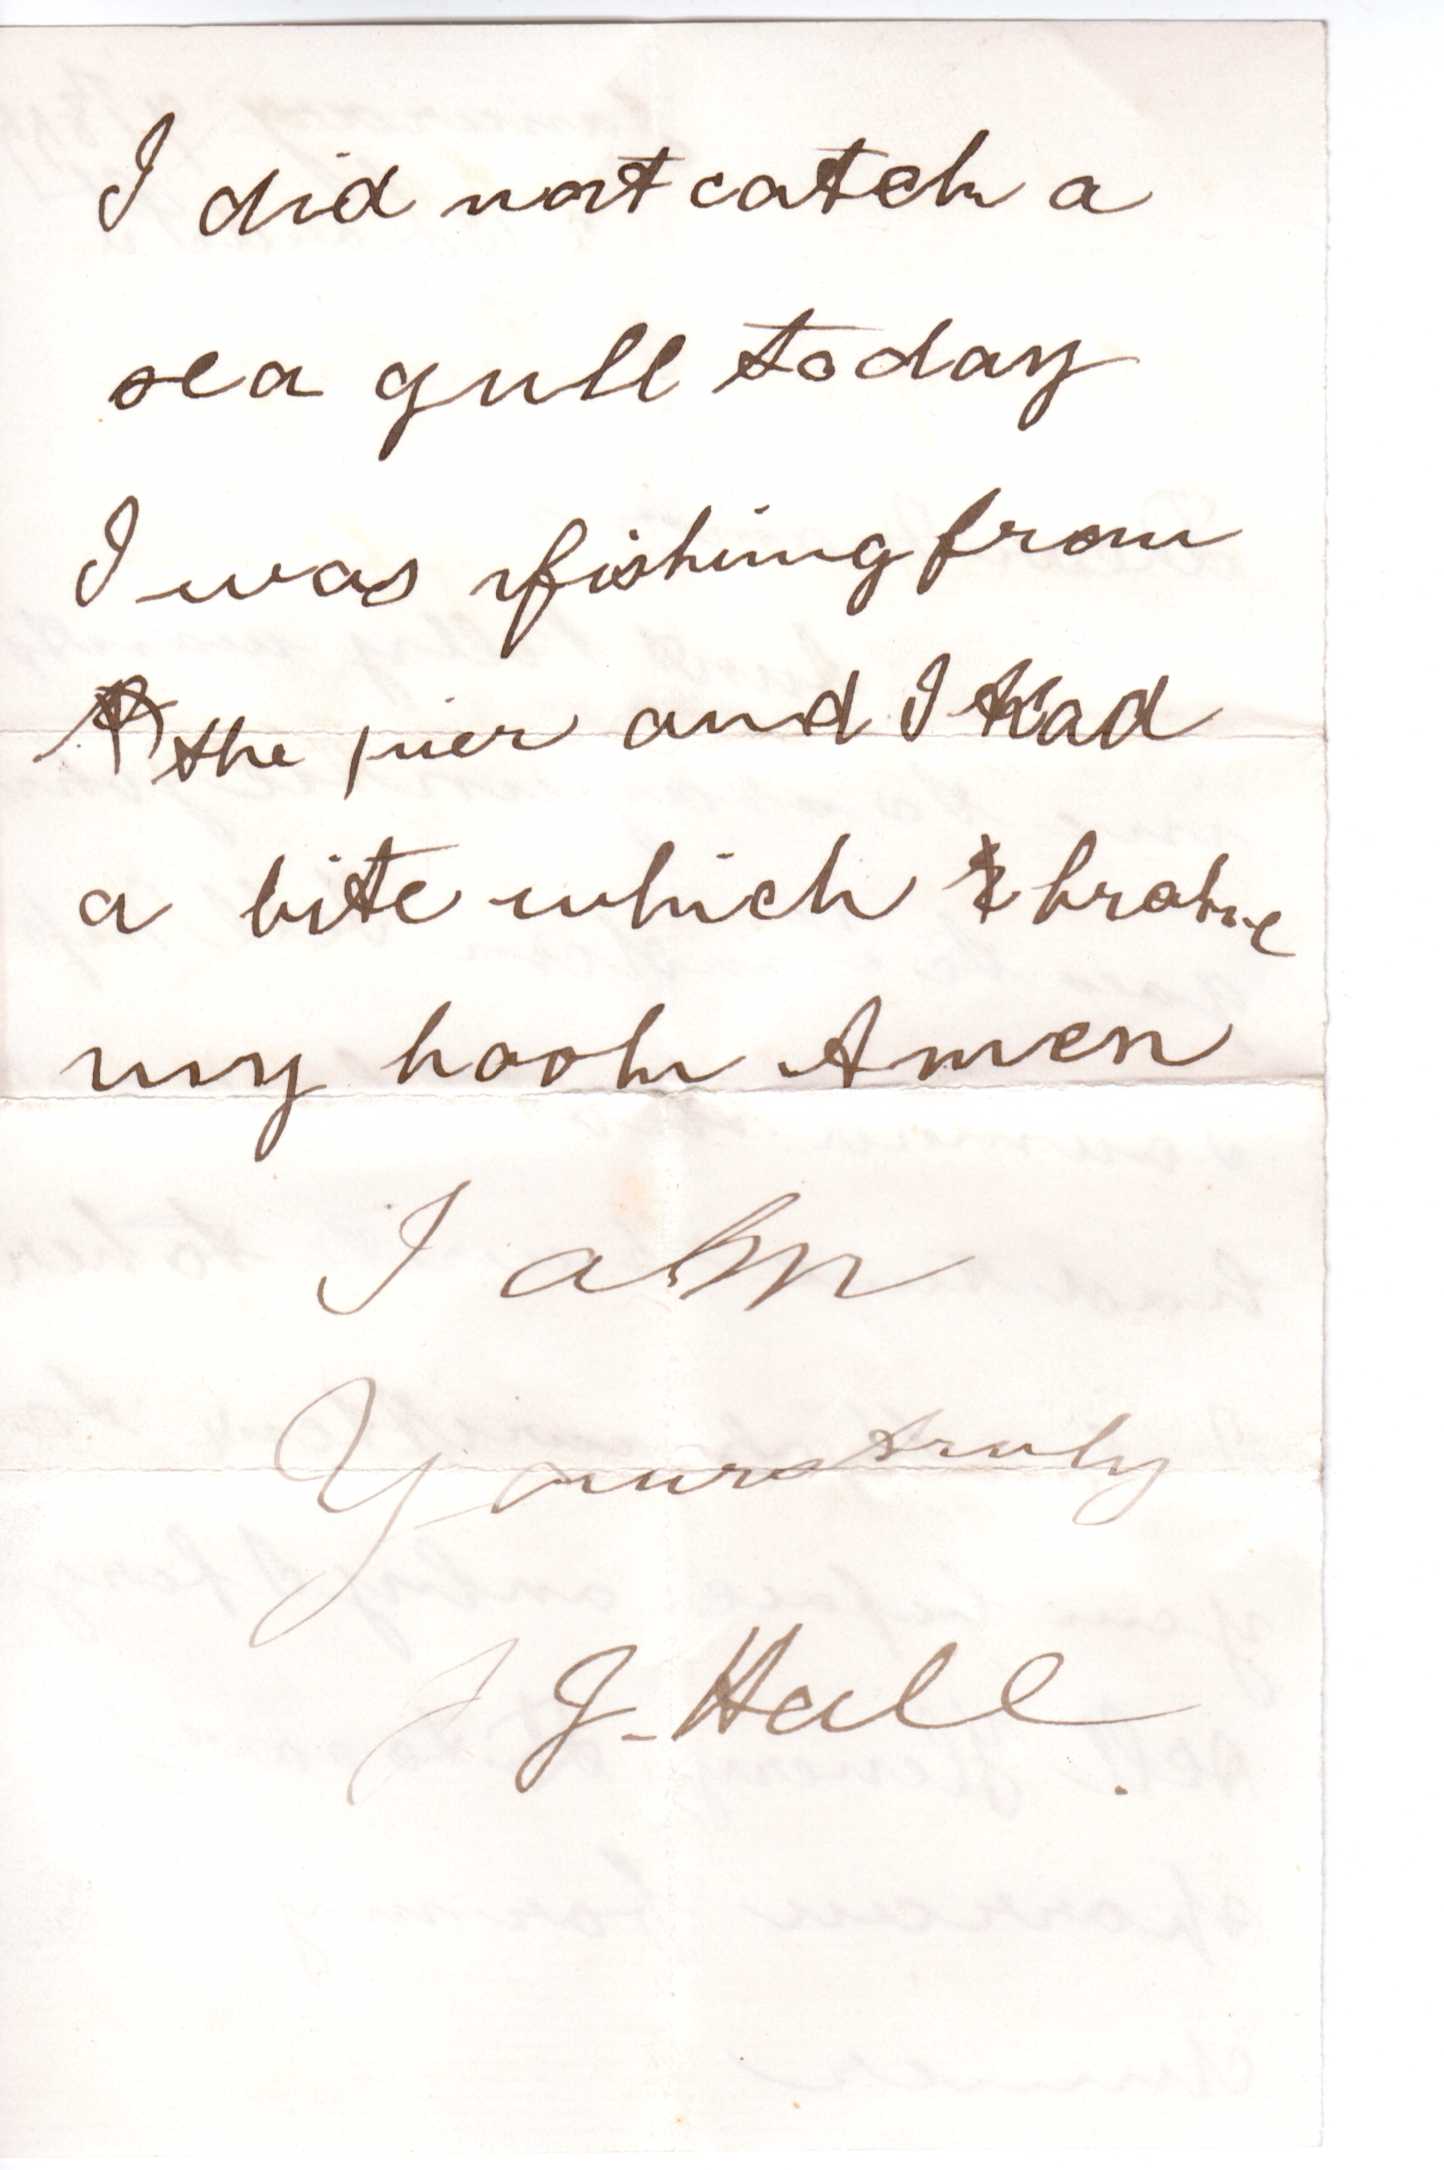 I did not catch a
sea gull today
I was fishing from
the pier and I had
a bite which broke
my hook Amen
I am
Yours truly
J. Hall.